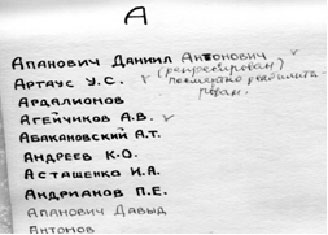 А
Апанович Даниил Антонович
Артаус У.С. (репрессирован)
посмертно реабилити
рован.
Ардалионов
Агейчиков А.В.
Абакановский А.Т.
Андреев К.О.
Асташенко И.А.
Андрианов П.Е.
Апанович Давыд
Антонов